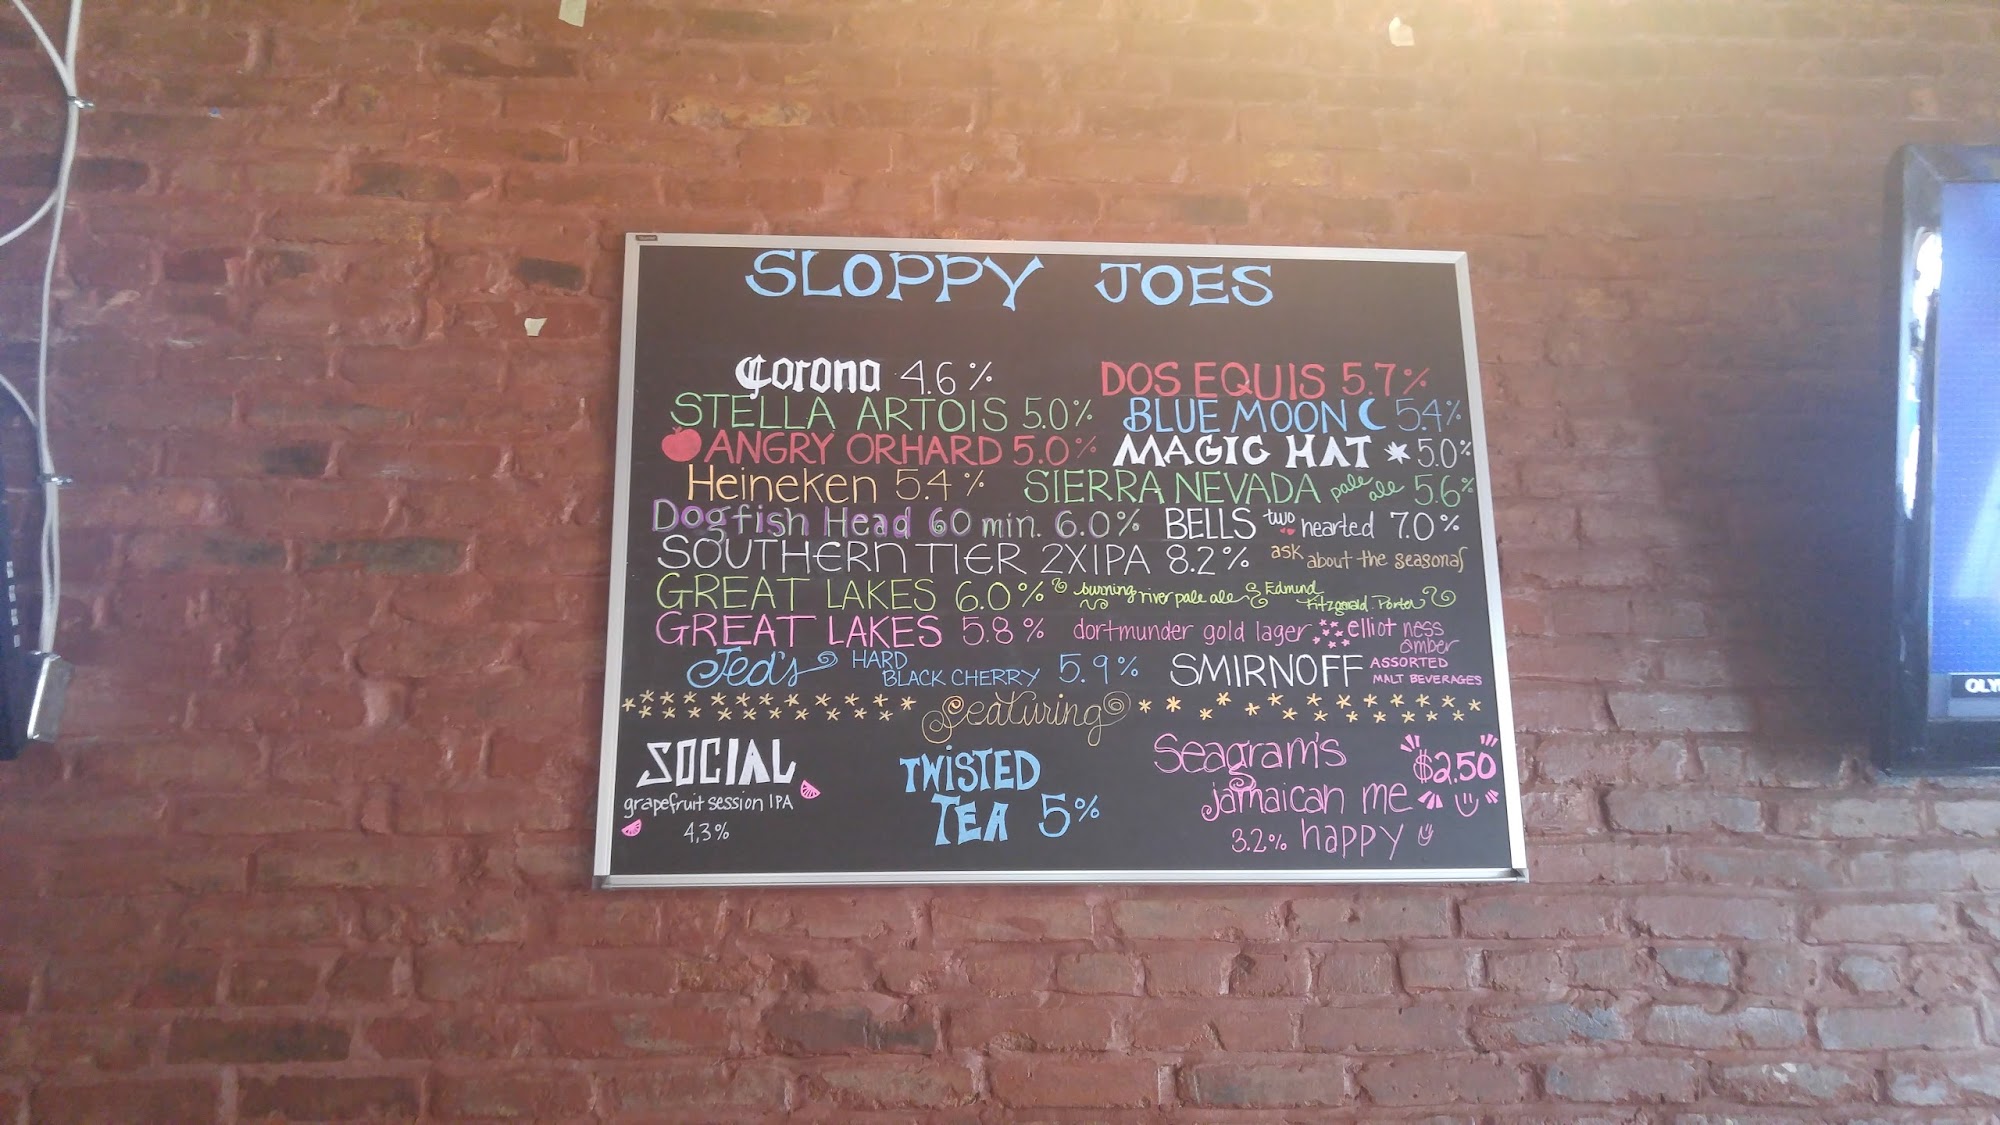 SLOPPY JOES
Corona 4.6% DOS EQUIS 5.7%
STELLA ARTOIS 5.0% BLUE MOON 5.4%
ANGRY ORHARD 5.0% MAGIC HAT 5.0%
Heineken 5.4% SIERRA NEVADA pale ale 5.6%
Dogfish Head 60 min. 6.0% BELLS two hearted 7.0%
SOUTHERN TIER 2XIPA 8.2% ask about the seasonals
GREAT LAKES 6.0% burning river pale ale Edmund Fitzgerald Porter
GREAT LAKES 5.8% dortmunder gold lager elliot ness amber
Jed's HARD BLACK CHERRY 5.9% SMIRNOFF ASSORTED MALT BEVERAGES
Featuring
SOCIAL
grapefruit session IPA
4,3%
TWISTED
TEA 5%
Seagram's $2.50
jamaican me
3.2% happy
OLY